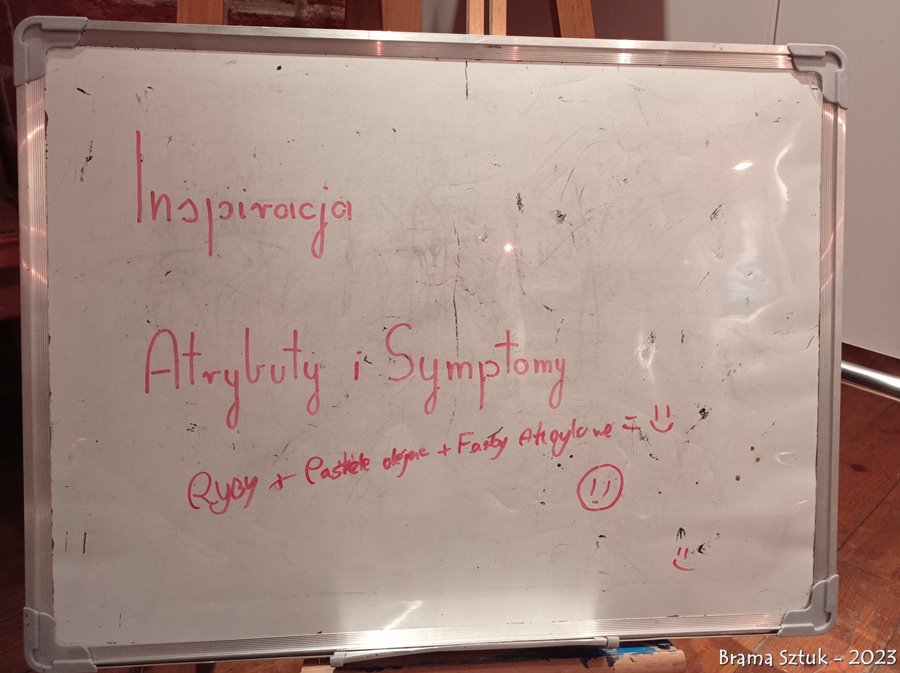 Inspiracja
Atrybuty i Symptomy
Ryby + Pastele olejne + Farby Akrylowe =
Brama Sztuk - 2023